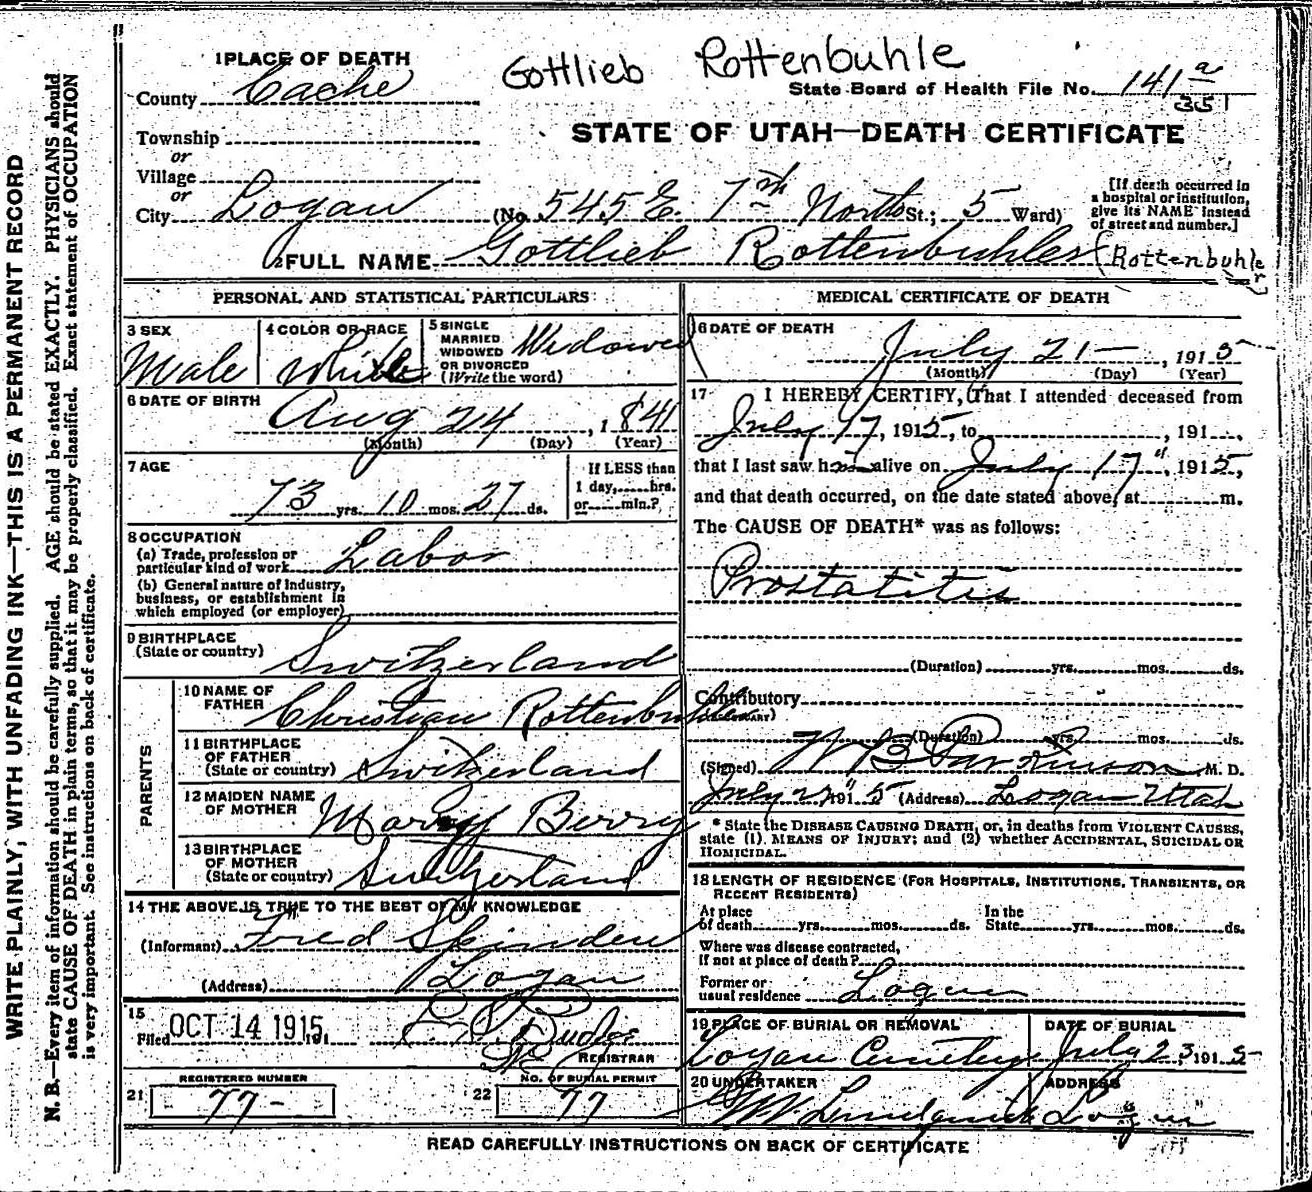 Gottlieb Rottenbuhle
1 PLACE OF DEATH
County Cache
State Board of Health File No. 141 a
351
Township
or
Village
or
City Logan
STATE OF UTAH—DEATH CERTIFICATE
(No. 545 E. 7th North St.; 5 Ward)
[If death occurred in
a hospital or institution,
give its NAME instead
of street and number.]
2 FULL NAME Gottlieb Rottenbuhler (Rottenbuhler
PERSONAL AND STATISTICAL PARTICULARS
3 SEX
Male
4 COLOR OR RACE
White
5 SINGLE
MARRIED
WIDOWED
OR DIVORCED
(Write the word)
Widowed
6 DATE OF BIRTH
Aug 24, 1841
(Month) (Day) (Year)
7 AGE
73 yrs. 10 mos. 27 ds.
If LESS than
1 day, hrs.
or min.?
8 OCCUPATION
(a) Trade, profession or
particular kind of work Labor
(b) General nature of industry,
business, or establishment in
which employed (or employer)
9 BIRTHPLACE
(State or country) Switzerland
PARENTS
10 NAME OF
FATHER Christian Rottenbuhler
11 BIRTHPLACE
OF FATHER
(State or country) Switzerland
12 MAIDEN NAME
OF MOTHER Mary Berry
13 BIRTHPLACE
OF MOTHER
(State or country) Switzerland
14 THE ABOVE IS TRUE TO THE BEST OF MY KNOWLEDGE
(Informant) Fred
(Address) Logan
15
Filed OCT 14 1915, 191
REGISTRAR
REGISTERED NUMBER
21 77-
NO. OF BURIAL PERMIT
22 77
MEDICAL CERTIFICATE OF DEATH
16 DATE OF DEATH
July 21—, 1915
(Month) (Day) (Year)
17 I HEREBY CERTIFY, (That I attended deceased from
July 17, 1915, to , 191 ,
that I last saw him alive on July 17", 1915,
and that death occurred, on the date stated above, at m.
The CAUSE OF DEATH* was as follows:
Prostatitis
(Duration) yrs. mos. ds.
Contributory
(Duration) yrs. mos. ds.
(Signed) W B Parkinson M. D.
July 1915 (Address) Logan Utah
* State the DISEASE CAUSING DEATH, or, in deaths from VIOLENT CAUSES,
state (1) MEANS OF INJURY; and (2) whether ACCIDENTAL, SUICIDAL OR
HOMICIDAL.
18 LENGTH OF RESIDENCE (FOR HOSPITALS, INSTITUTIONS, TRANSIENTS, OR
RECENT RESIDENTS)
At place
of death yrs. mos. ds.
In the
State yrs. mos. ds.
Where was disease contracted,
if not at place of death?
Former or
usual residence Logan
19 PLACE OF BURIAL OR REMOVAL
Logan Cemetery
DATE OF BURIAL
July 23, 1915
20 UNDERTAKER
ADDRESS
Logan
READ CAREFULLY INSTRUCTIONS ON BACK OF CERTIFICATE
WRITE PLAINLY, WITH UNFADING INK—THIS IS A PERMANENT RECORD
N. B.—Every item of information should be carefully supplied. AGE should be stated EXACTLY. PHYSICIANS should
state CAUSE OF DEATH in plain terms, so that it may be properly classified. Exact statement of OCCUPATION
is very important. See instructions on back of certificate.